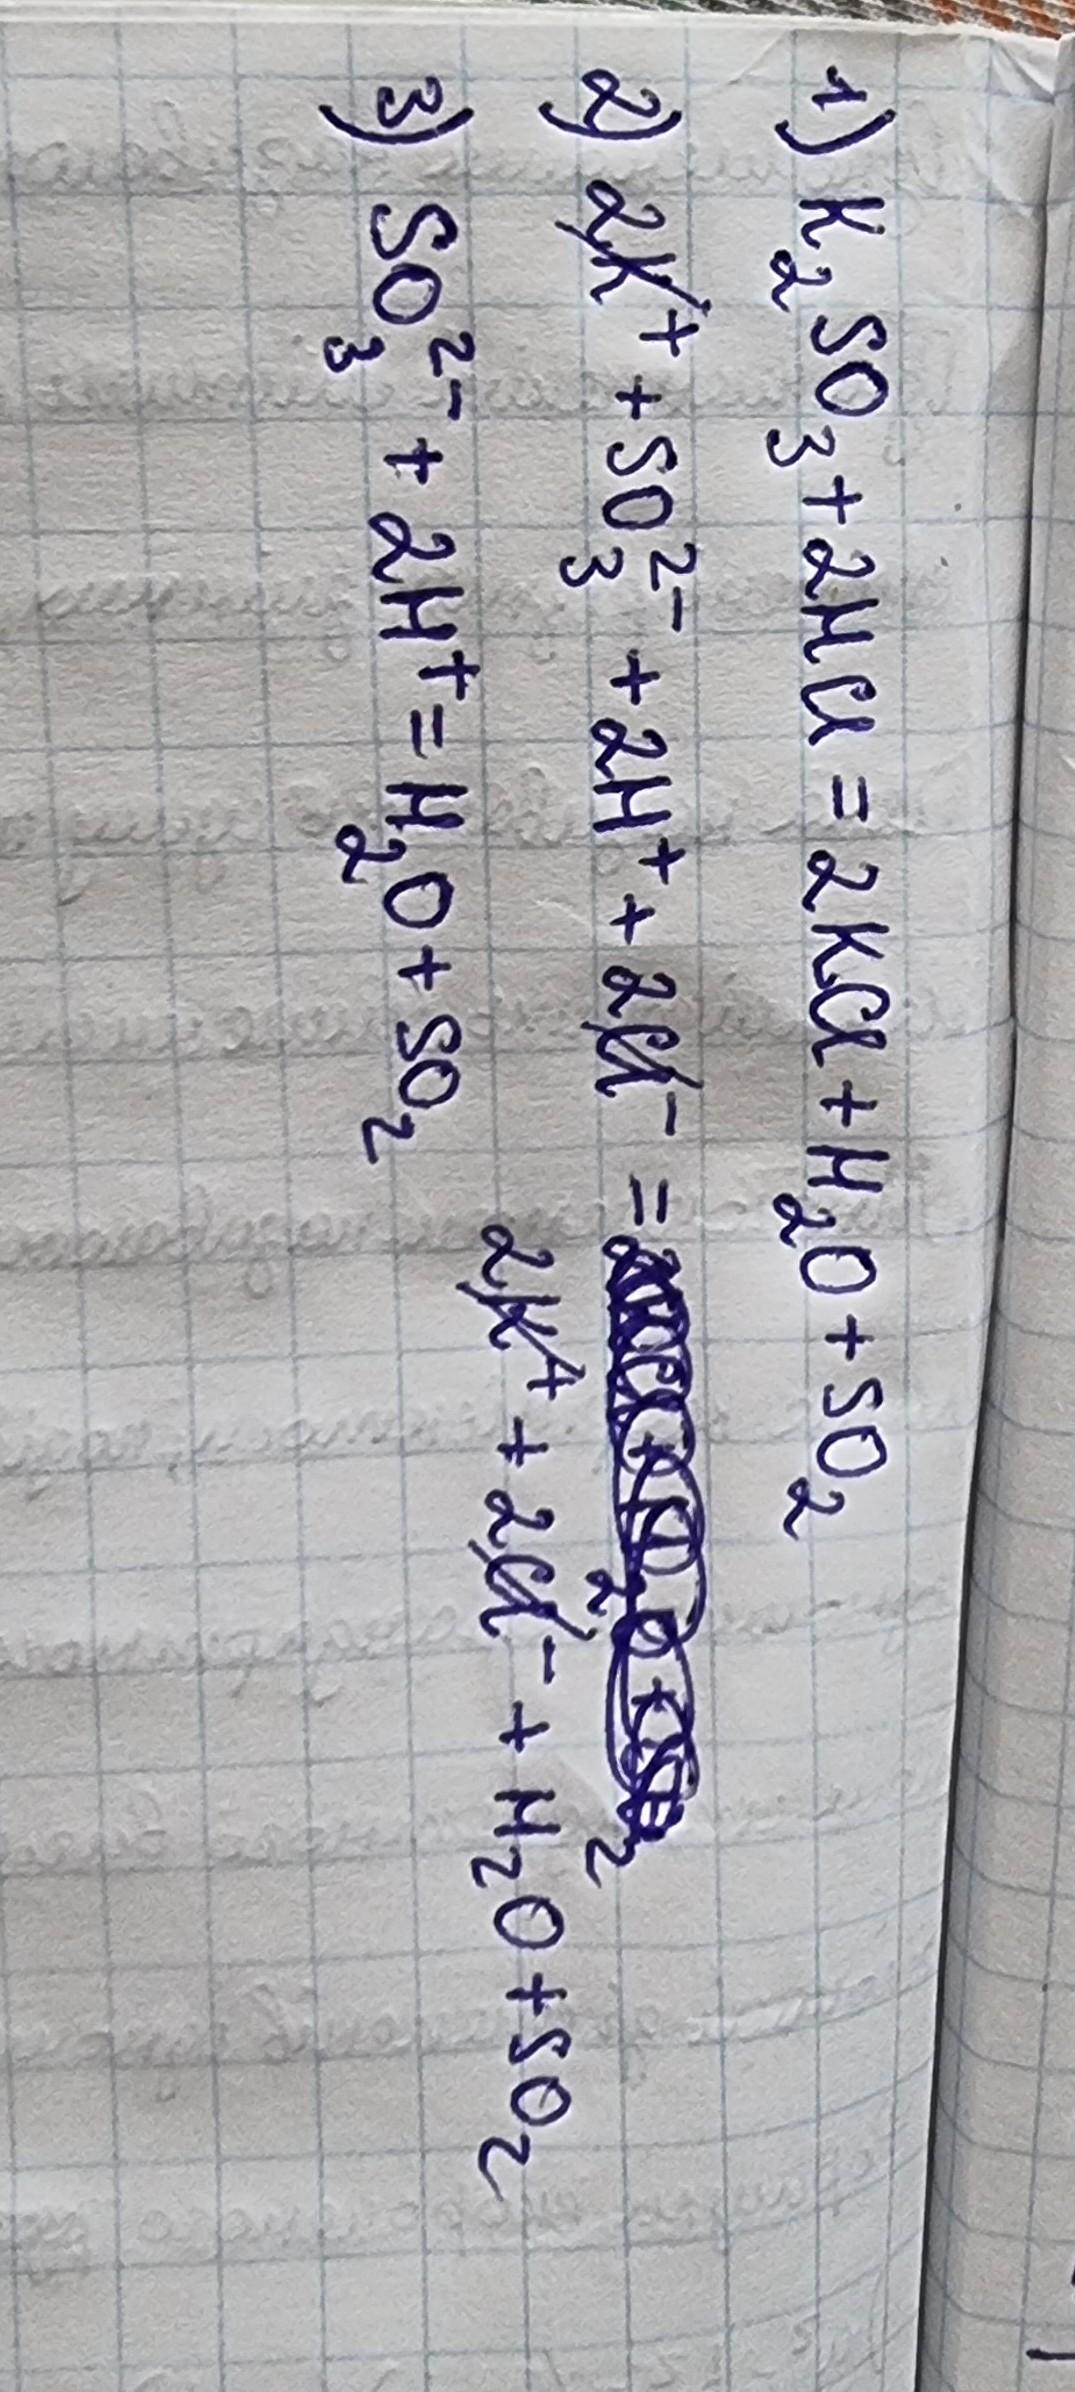 1) K₂SO₃ + 2HCl = 2KCl + H₂O + SO₂
2) 2K⁺ + SO₃²⁻ + 2H⁺ + 2Cl⁻ =
2K⁺ + 2Cl⁻ + H₂O + SO₂
3) SO₃²⁻ + 2H⁺ = H₂O + SO₂